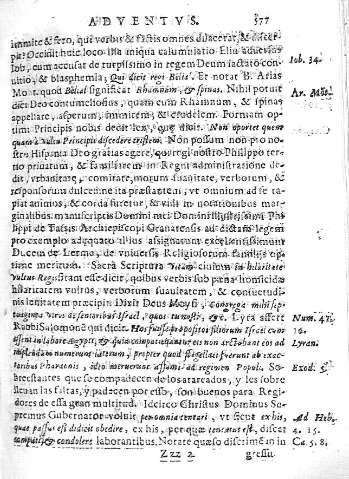 ADVENTVS. 577
immite & fero, qui verbis & factis omnes dilacerat, & discer-
pat. Occurrit huic loco illa iniqua calumniatio Eliu adversus
Iob, cum accusat de turpissimo in regem Deum iactato con-
uitio, & blasphemia; Qui dicit regi Belial. Et notat B. Arias
Mont. quod Belial significat Rhamnum, & spinas. Nihil potuit
dici Deo contumeliosius, quam eum Rhamnum, & spinas
appellare, asperum, immitem, & crudelem. Formam op-
timi Principis nobis dedit lex, quæ dicit. Non oportet quem
quam à vultu Principis discedere tristem. Non possum non pro no-
stra Hispania Deo gratias agere, qui regi nostro Philippo ter-
tio priuatum, & familiarem in Regni administratione de-
dit, vrbanitate, comitate, morum suauitate, verborum, &
responsorum dulcedine ita præstantem, vt omnium ad se ra-
piat animos, & corda furetur, & vidi in notationibus mar-
ginalibus manuscriptis Domini mei Domini Illustrissimi Phi-
lippi de Tassis Archiepiscopi Granatensis ad dictam legem
pro exemplo adæquato illius assignatum excellentissimum
Ducem de Lerma, de vniuersis Religiosorum familiis op-
time meritum. Sacra Scriptura vitam ciuium in hilaritate
vultus Regis sitam esse dicit, quibus verbis sub pœna homicidij
hilaritatem vultus, verborum suauitatem, & consuetudi-
nis lenitatem præcipit. Dixit Deus Moysi, Congrega mihi sep-
tuaginta viros de senioribus Israel, quos tu nosti, &c. Lyra asserit
Rabbi Salomone qui dicit. Hos fuisse propositos filiorum Israel cum
essent in labore Ægypti, & quia compatiebantur eis non arctabant eos ad
implendum numerum laterum, propter quod flagellati fuerunt ab exac-
toribus Pharaonis, ideo instruuntur assumi ad regimen Populi. So-
brestantes que se compadecen de los atareados, y les sobre
lleuan las faltas, y padecen por esso, son buenos para Regi-
dores de essa gran multitud. Idcirco Christus Dominus Su-
premus Gubernator voluit per omnia tentari, vt sicut ex his,
quæ passus est didicit obedire, ex his, per quæ tentatus est, discat
compati, & condolere laborantibus. Notare quæso discrimē in
Zzz 2 gressu
Iob. 34.
Ar. Mōt.
Num. 11.
Lyran.
Exod. 5.
Ad Heb.
4. 15.
Ca. 5. 8.